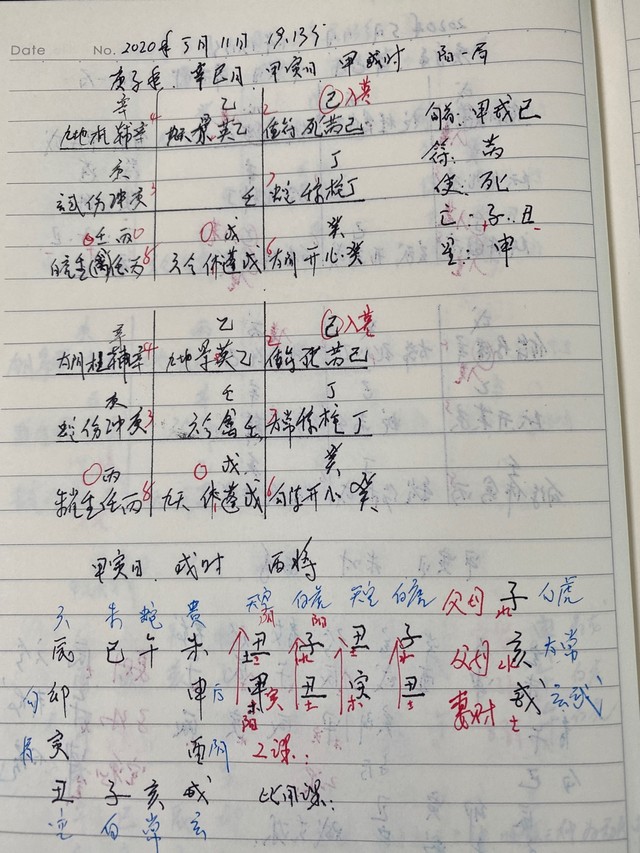 Date No. 2020年5月11日 19.13分
庚子年. 辛巳月. 甲寅日. 甲戌时 阳一局
辛 乙 己入墓
九地杜辅辛 4 九天景英乙 值符死芮己 2 旬首:甲戌己
庚 丁 符:芮
玄武伤冲庚 3 壬 螣蛇惊柱丁 7 使:死
壬丙 戊 癸 亡:子.丑
白虎生禽任丙 8 六合休蓬戊 太阴开心癸 6 星:申
辛 乙 己入墓
太阴杜辅辛 4 九地景英乙 值符死芮己 2
庚 壬 丁
螣蛇伤冲庚 3 六合禽壬 太常惊柱丁 7
丙 戊 癸
朱雀生任丙 8 九天休蓬戊 勾陈开心癸 6
甲寅日. 戌时 酉将
六 朱 蛇 贵 天空 白虎 天空 白虎 父母 子 白虎
辰 巳 午 未 丑 子 丑 子 父母 亥 太常
勾 卯 申 后 甲寅 丑 寅 丑 妻财 戌 玄武
寅 酉 阴
丑 子 亥 戌 比用课:
空 白 常 玄